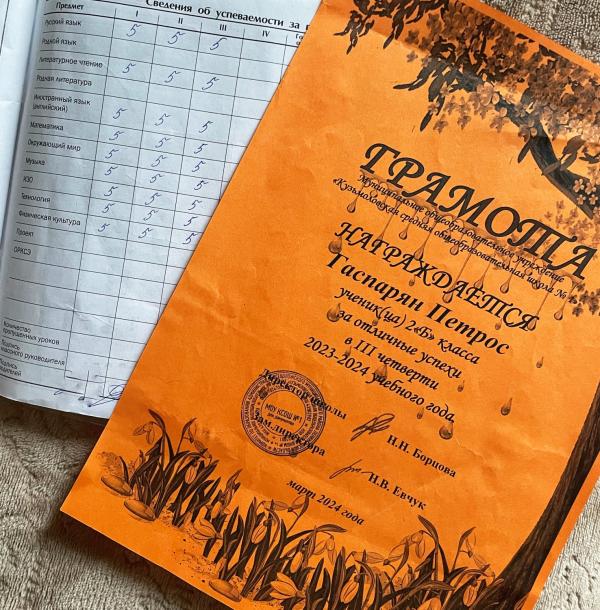 Предмет
Сведения об успеваемости за
I II III IV
Русский язык 5 5 5
Родной язык
Литературное чтение 5 5 5
Родная литература
Иностранный язык
(английский) 5 5 5
Математика 5 5 5
Окружающий мир 5 5 5
Музыка 5 5 5
ИЗО 5 5 5
Технология 5 5 5
Физическая культура 5 5 5
Проект
ОРКСЭ
Количество
пропущенных уроков
Подпись
классного руководителя
Подпись
родителей
ГРАМОТА
Муниципальное общеобразовательное учреждение
«Кузьмоловская средняя общеобразовательная школа №
НАГРАЖДАЕТСЯ
Гаспарян Петрос
ученик(ца) 2«Б» класса
за отличные успехи
в III четверти
2023-2024 учебного года
Директор школы
Н.Н. Борцова
Зам.директора
Н.В. Евчук
МОУ КСОШ №1
март 2024 года